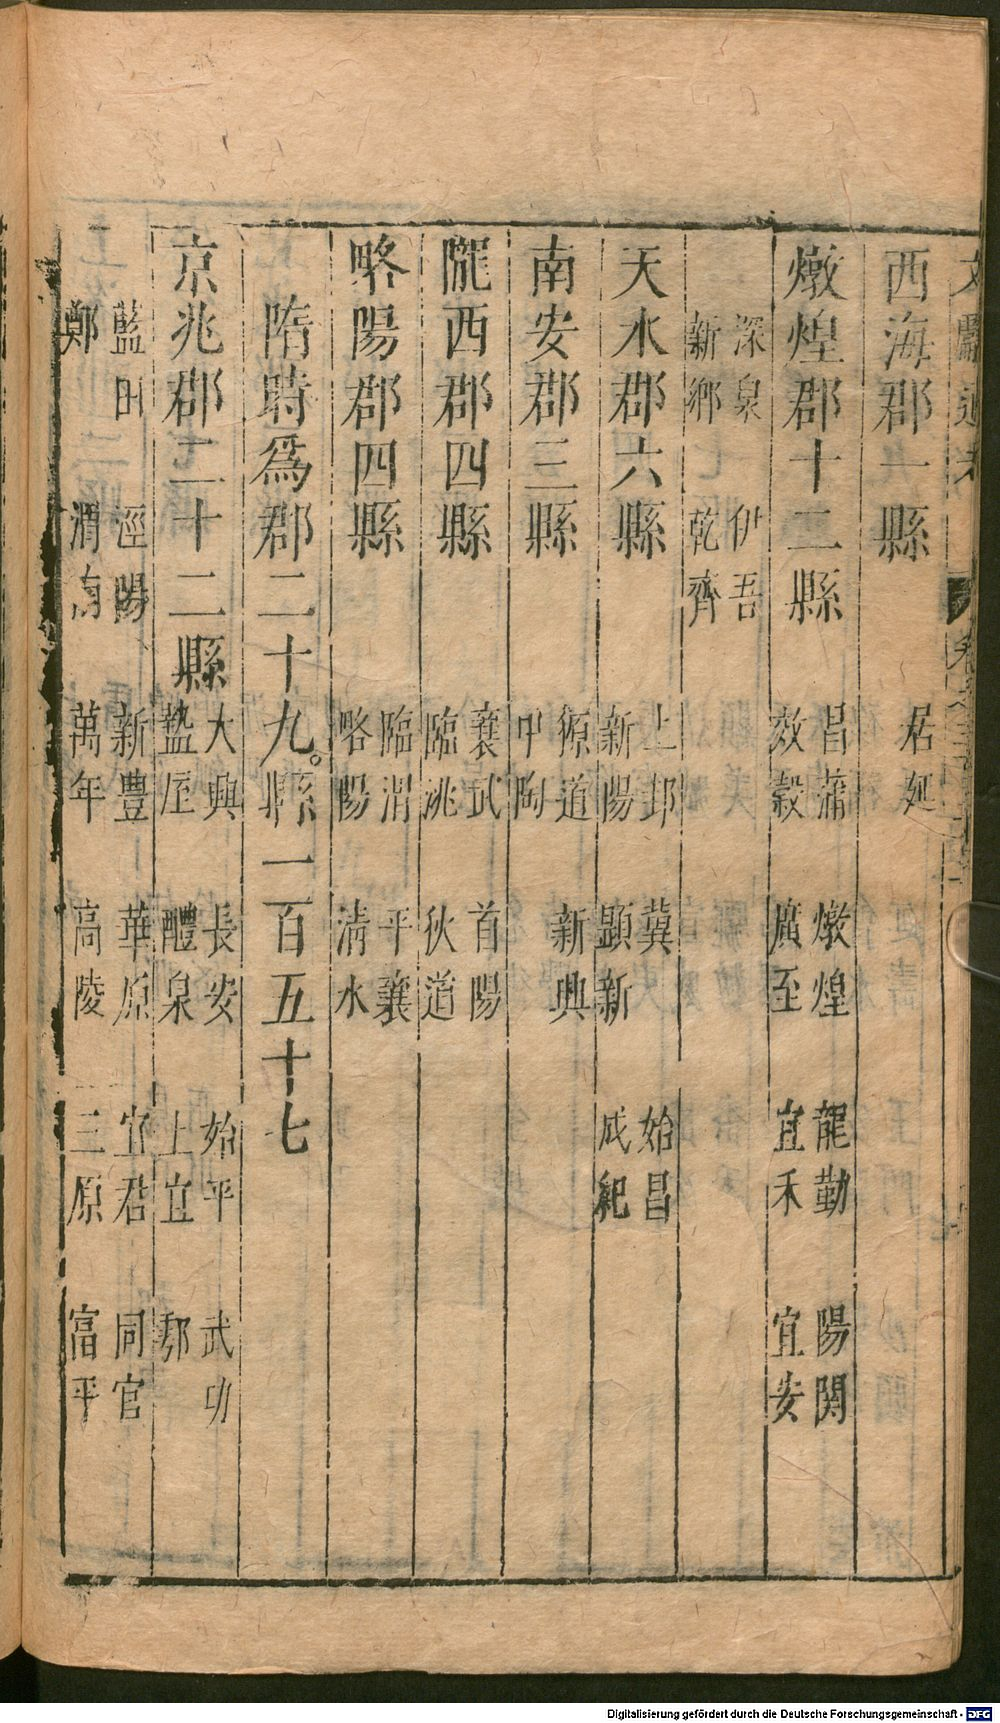 西海郡一縣 居延
燉煌郡十二縣 昌蒲 燉煌 龍勤 陽関
效穀 廣至 宜禾 宜安
深泉 伊吾
新鄉 乾齊
天水郡六縣 上邽 冀 始昌
新陽 顯新 成紀
南安郡三縣 獂道 新興
中陶
隴西郡四縣 襄武 首陽
臨洮 狄道
畧陽郡四縣 臨渭 平襄
畧陽 清水
隋時爲郡二十九。縣一百五十七
京兆郡二十二縣 大興 長安 始平 武功
盩厔 醴泉 上宜 鄠
藍田 涇陽 新豐 華原 宜君 同官
鄭 渭南 萬年 高陵 三原 富平
Digitalisierung gefördert durch die Deutsche Forschungsgemeinschaft - DFG